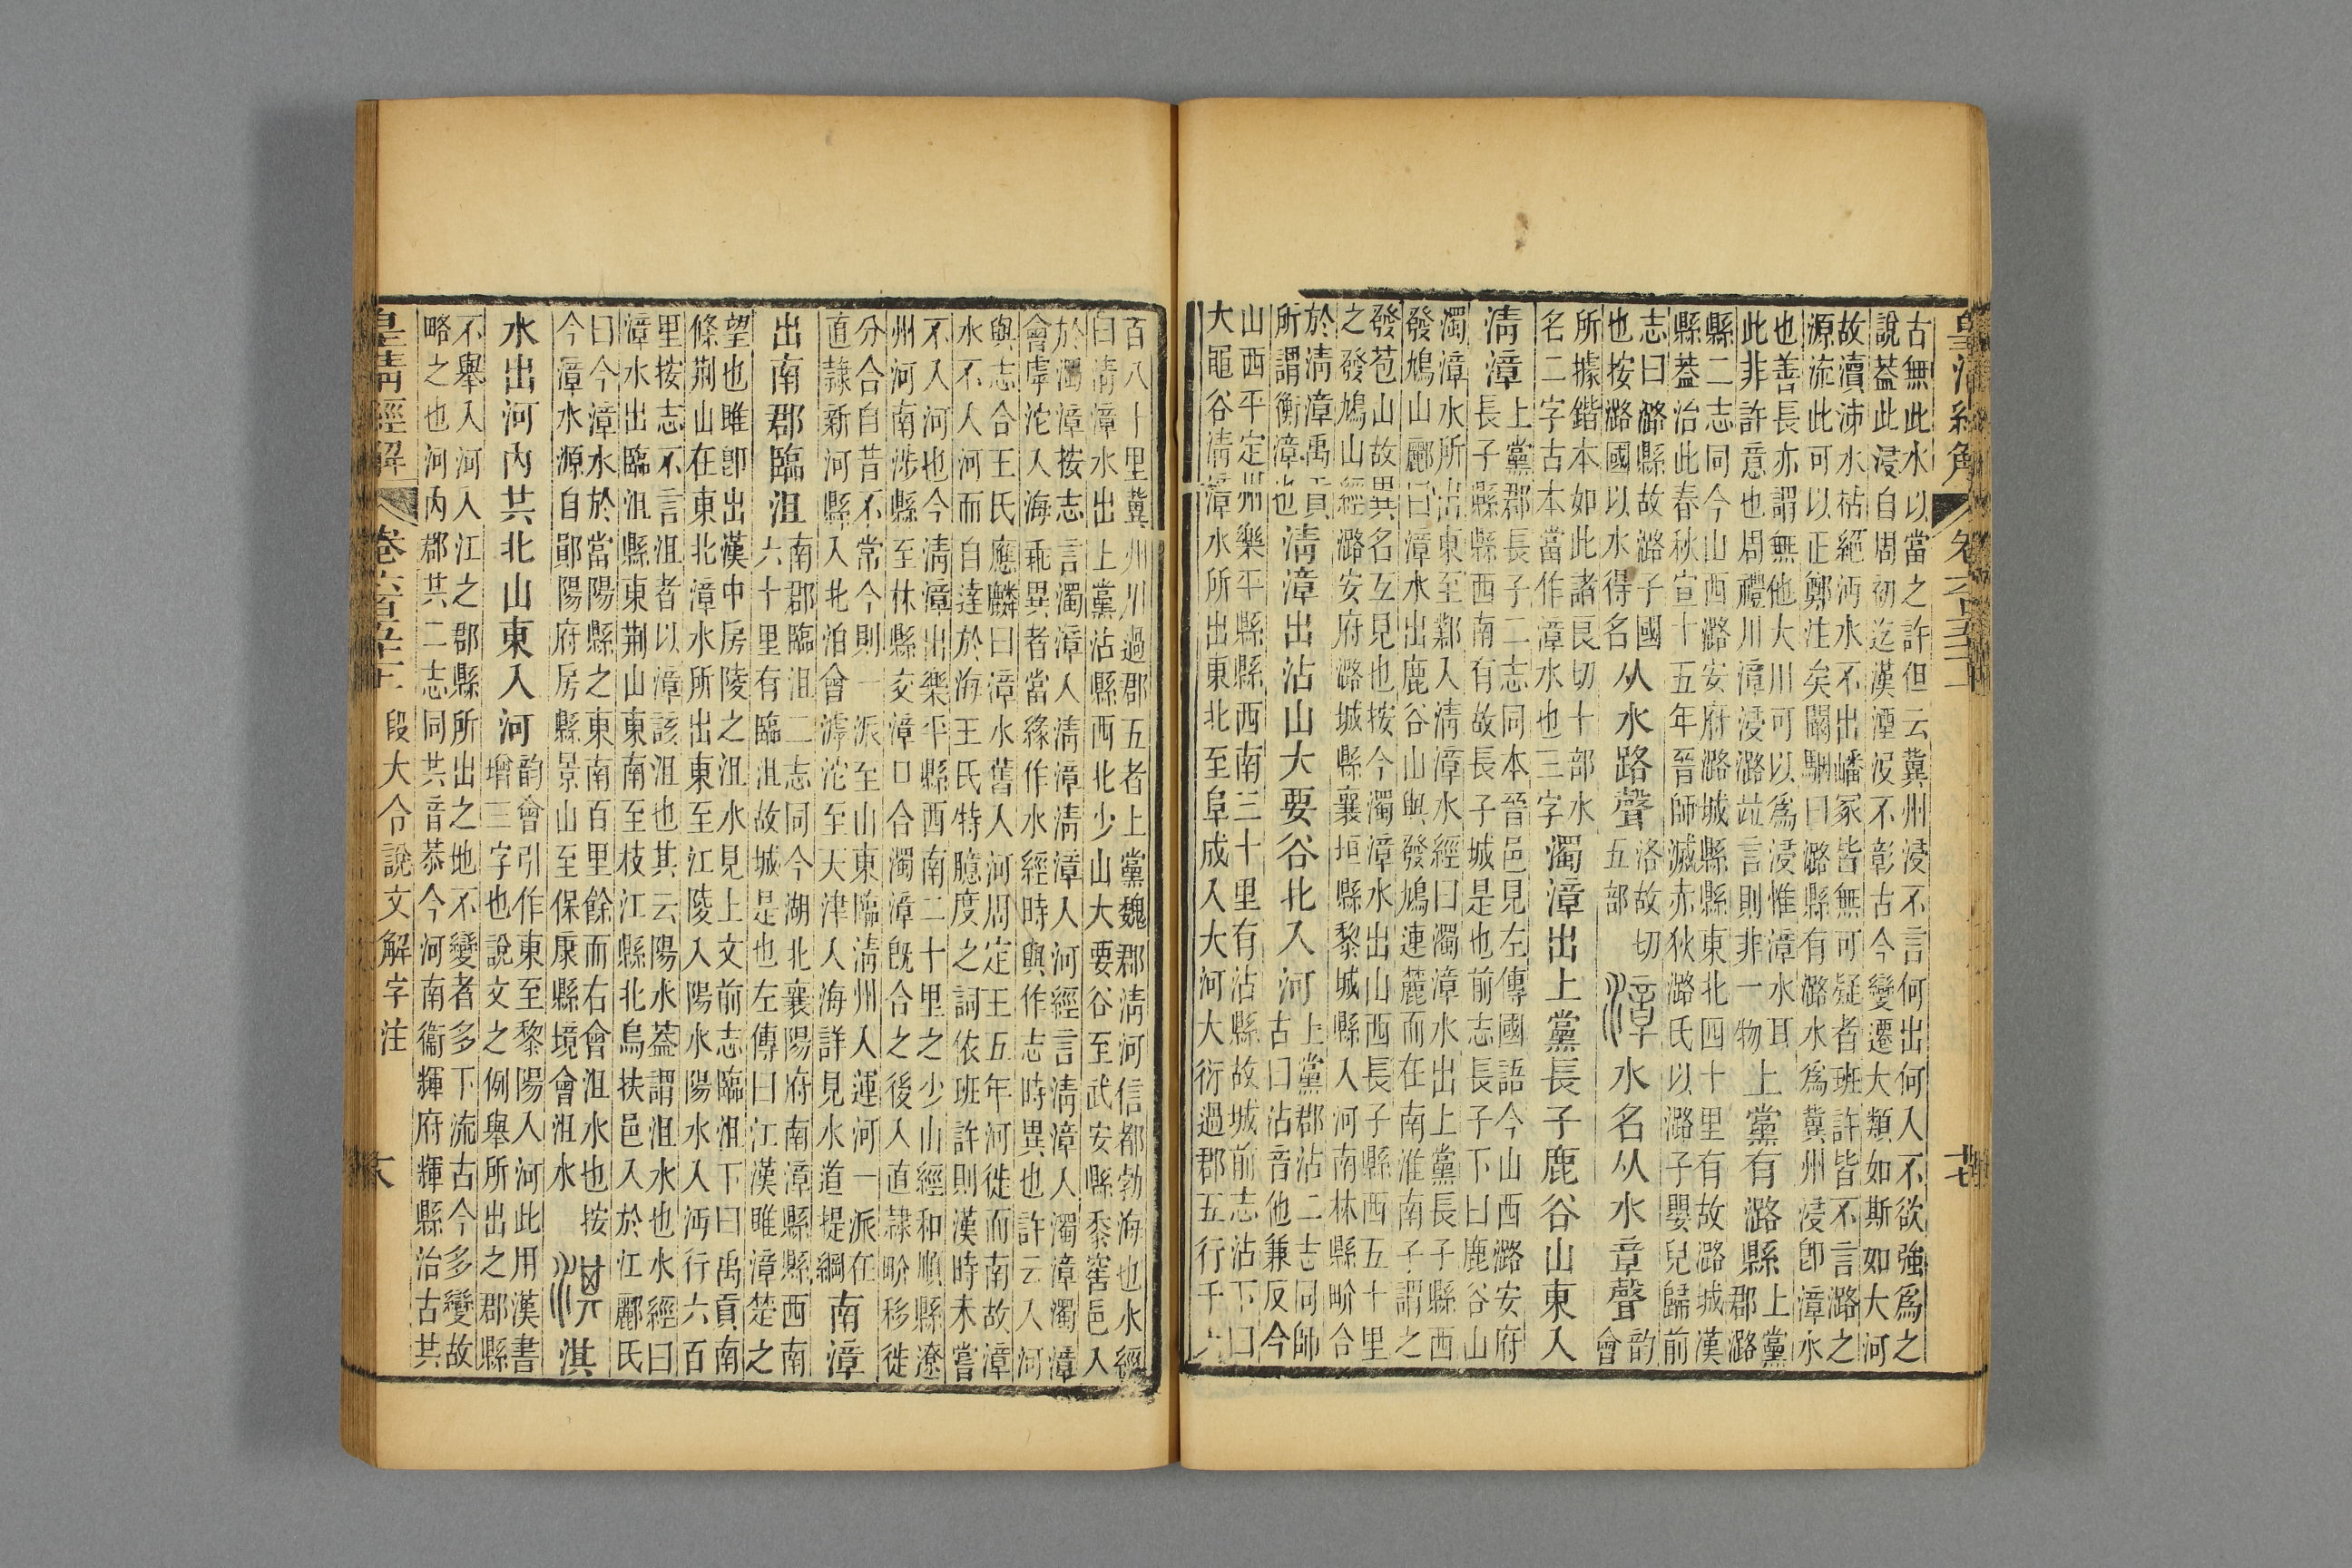 皇清經解 卷六百五十二 十七
古無此水以當之許但云冀州浸不言何出何入不欲強爲之
說葢此浸自周初迄漢湮沒不彰古今變遷大類如斯如大河
故瀆沛水枯絕沔水不出嶓冢皆無可疑者班許皆不言潞之
源流此可以正鄭注矣闞駰曰潞縣有潞水爲冀州浸卽漳水
也善長亦謂無他大川可以爲浸惟漳水耳
此非許意也周禮川漳浸潞竝言則非一物
上黨有潞縣
上黨
郡潞
縣二志同今山西潞安府潞城縣縣東北四十里有故潞城漢
縣葢治此春秋宣十五年晉師滅赤狄潞氏以潞子嬰兒歸前
志曰潞縣故潞子國
也按潞國以水得名
从水路聲
洛故切
五部
漳 水名从水章聲
韵
會
所據鍇本如此諸良切十部水
名二字古本當作漳水也三字
濁漳出上黨長子鹿谷山東入
清漳
上黨郡長子二志同本晉邑見左傳國語今山西潞安府
長子縣縣西南有故長子城是也前志長子下曰鹿谷山
濁漳水所出東至鄴入清漳水經曰濁漳水出上黨長子縣西
發鳩山酈曰漳水出鹿谷山與發鳩連麓而在南淮南子謂之
發苞山故異名互見也按今濁漳水出山西長子縣西五十里
之發鳩山經潞安府潞城縣襄垣縣黎城縣入河南林縣畍合
於清漳禹貢
所謂衡漳也
清漳出沾山大要谷北入河
上黨郡沾二志同師
古曰沾音他兼反今
山西平定州樂平縣縣西南三十里有沾縣故城前志沾下曰
大黽谷清漳水所出東北至阜成入大河大衍過郡五行千六
百八十里冀州川過郡五者上黨魏郡清河信都勃海也水經
曰清漳水出上黨沾縣西北少山大要谷至武安縣黍窖邑入
於濁漳按志言濁漳入清漳清漳入河經言清漳入濁漳濁漳
會虖沱入海乖異者當緣作水經時與作志時異也許云入河
與志合王氏應麟曰漳水舊入河周定王五年河徙而南故漳
水不入河而自達於海王氏特臆度之詞依班許則漢時未嘗
不入河也今清漳出樂平縣西南二十里之少山經和順縣遼
州河南涉縣至林縣交漳口合濁漳旣合之後入直隷畍移徙
分合自昔不常今則一派至山東臨清州入運河一派在
直隷新河縣入北泊會滹沱至天津入海詳見水道提綱
南漳
出南郡臨沮
南郡臨沮二志同今湖北襄陽府南漳縣縣西南
六十里有臨沮故城是也左傳曰江漢睢漳楚之
望也睢卽出漢中房陵之沮水見上文前志臨沮下曰禹貢南
條荆山在東北漳水所出東至江陵入陽水陽水入沔行六百
里按志不言沮者以漳該沮也其云陽水葢謂沮水也水經曰
漳水出臨沮縣東荆山東南至枝江縣北烏扶邑入於江酈氏
曰今漳水於當陽縣之東南百里餘而右會沮水也按
今漳水源自鄖陽府房縣景山至保康縣境會沮水
淇 淇
水出河內共北山東入河
韵會引作東至黎陽入河此用漢書
增三字也說文之例舉所出之郡縣
不舉入河入江之郡縣所出之地不變者多下流古今多變故
略之也河內郡共二志同共音恭今河南衞輝府輝縣治古共
皇清經解 卷六百五十二 段大令說文解字注 大